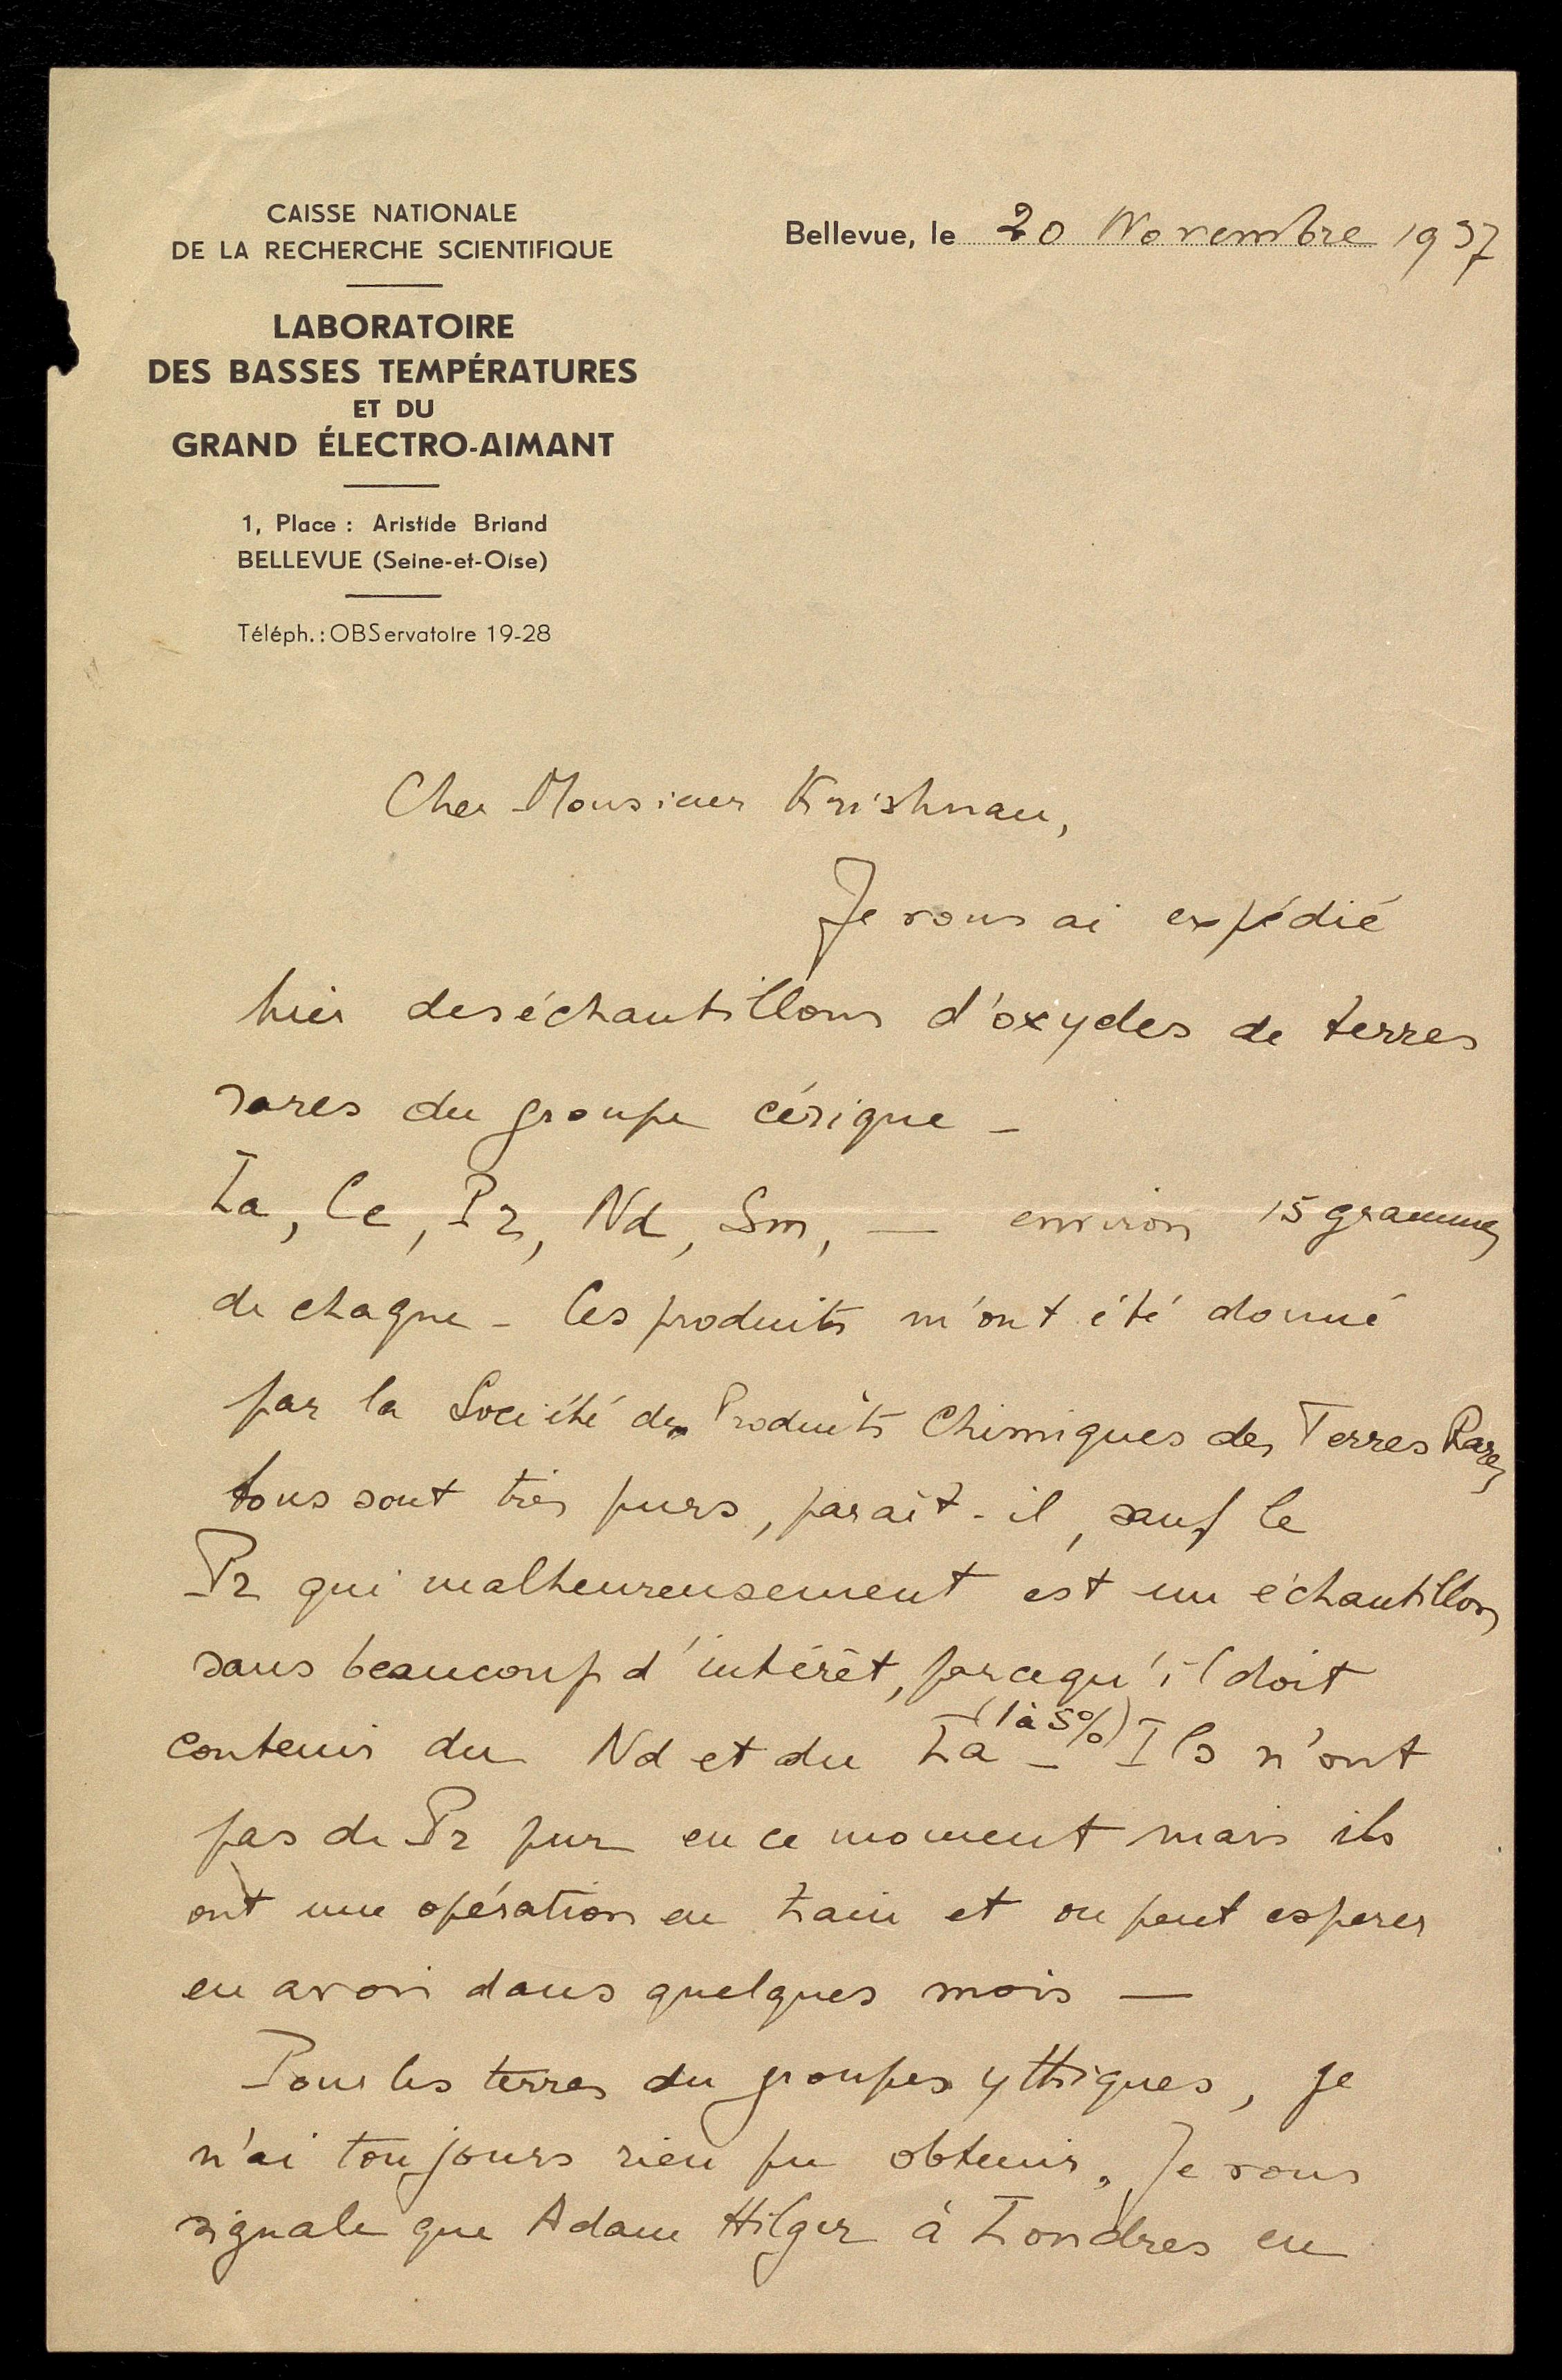 CAISSE NATIONALE
DE LA RECHERCHE SCIENTIFIQUE
LABORATOIRE
DES BASSES TEMPÉRATURES
ET DU
GRAND ÉLECTRO-AIMANT
1, Place : Aristide Briand
BELLEVUE (Seine-et-Oise)
Téléph. : OBServatoire 19-28
Bellevue, le 20 Novembre 1937
Cher Monsieur Krishnan,
Je vous ai expédié
hier des échantillons d'oxydes de terres
rares du groupe cérique _
La, Ce, Pr, Nd, Sm, — environ 15 grammes
de chaque - Ces produits m'ont été donné
par la Société des Produits Chimiques des Terres Rares
tous sont très purs, parait-il, sauf le
Pr qui malheureusement est un échantillon
sans beaucoup d'intérêt, parcequ'il doit
contenir du Nd et du La (1 à 5%) _ Ils n'ont
pas de Pr pur en ce moment mais ils
ont une opération en train et on peut esperer
en avoir dans quelques mois —
Pour les terres du groupes yttriques, je
n'ai toujours rien pu obtenir. Je vous
signale que Adam Hilger à Londres en